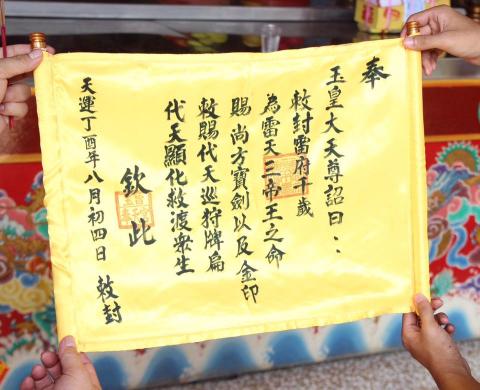 奉
玉皇大天尊詔曰：：
敕封雷府千歲
為雷天三帝王之命
賜尚方寶劍以及金印
敕賜代天巡狩牌匾
代天顯化救渡眾生
欽此
天運丁酉年八月初四日 敕封